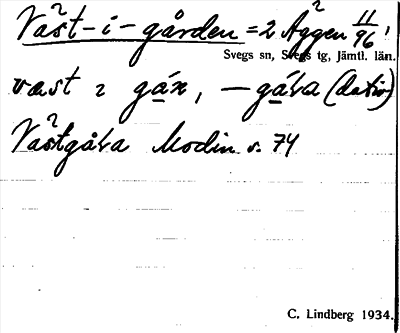 Väst-i-gården = 2 Aggen 11/96
Svegs sn, Svegs tg, Jämtl. län.
væst i gán, – gáva (dativ)
Västgåva Modin s. 74
C. Lindberg 1934.